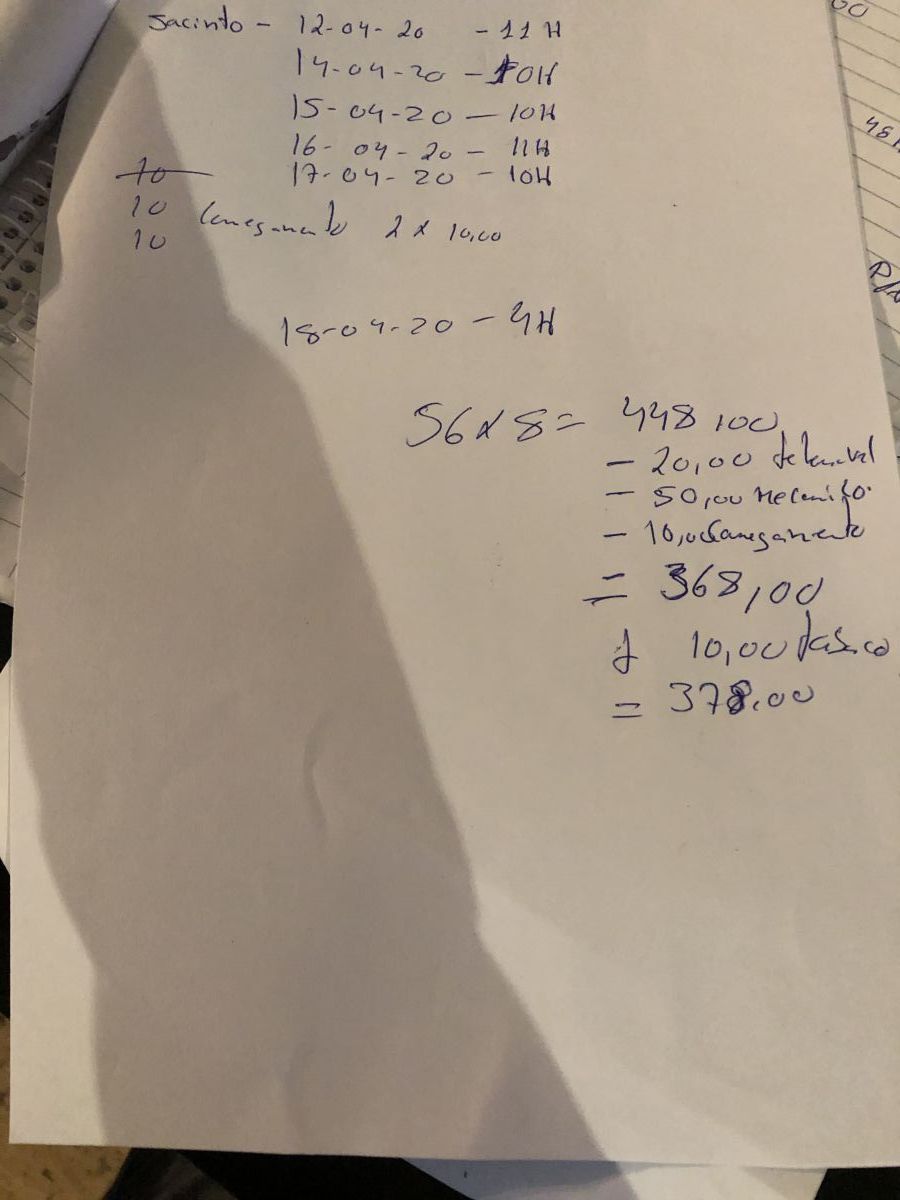 Jacinto - 12-04-20 - 11H
14-04-20 - 10H
15-04-20 - 10H
16-04-20 - 11H
17-04-20 - 10H
10
10 Carregamento 2 x 10,00
10
18-04-20 - 4H
56 x 8 = 448,00
- 20,00
- 50,00
- 10,00 Carregamento
= 368,00
+ 10,00
= 378,00
00
48
R/